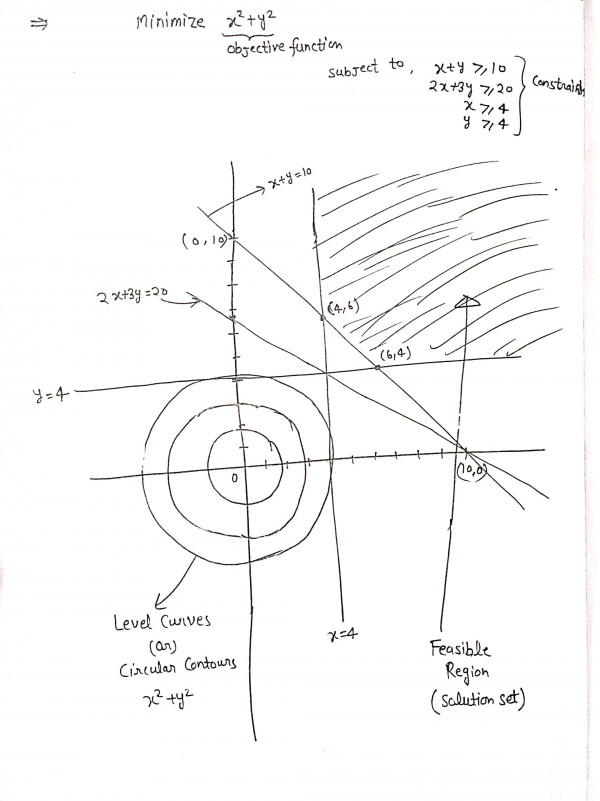 ⇒ Minimize x²+y²
objective function
subject to, x+y ≥ 10
2x+3y ≥ 20
x ≥ 4
y ≥ 4
Constraints
x+y=10
(0,10)
2x+3y=20
(4,6)
(6,4)
y=4
0
(10,0)
Level Curves
(or)
Circular Contours
x²+y²
x=4
Feasible
Region
(solution set)